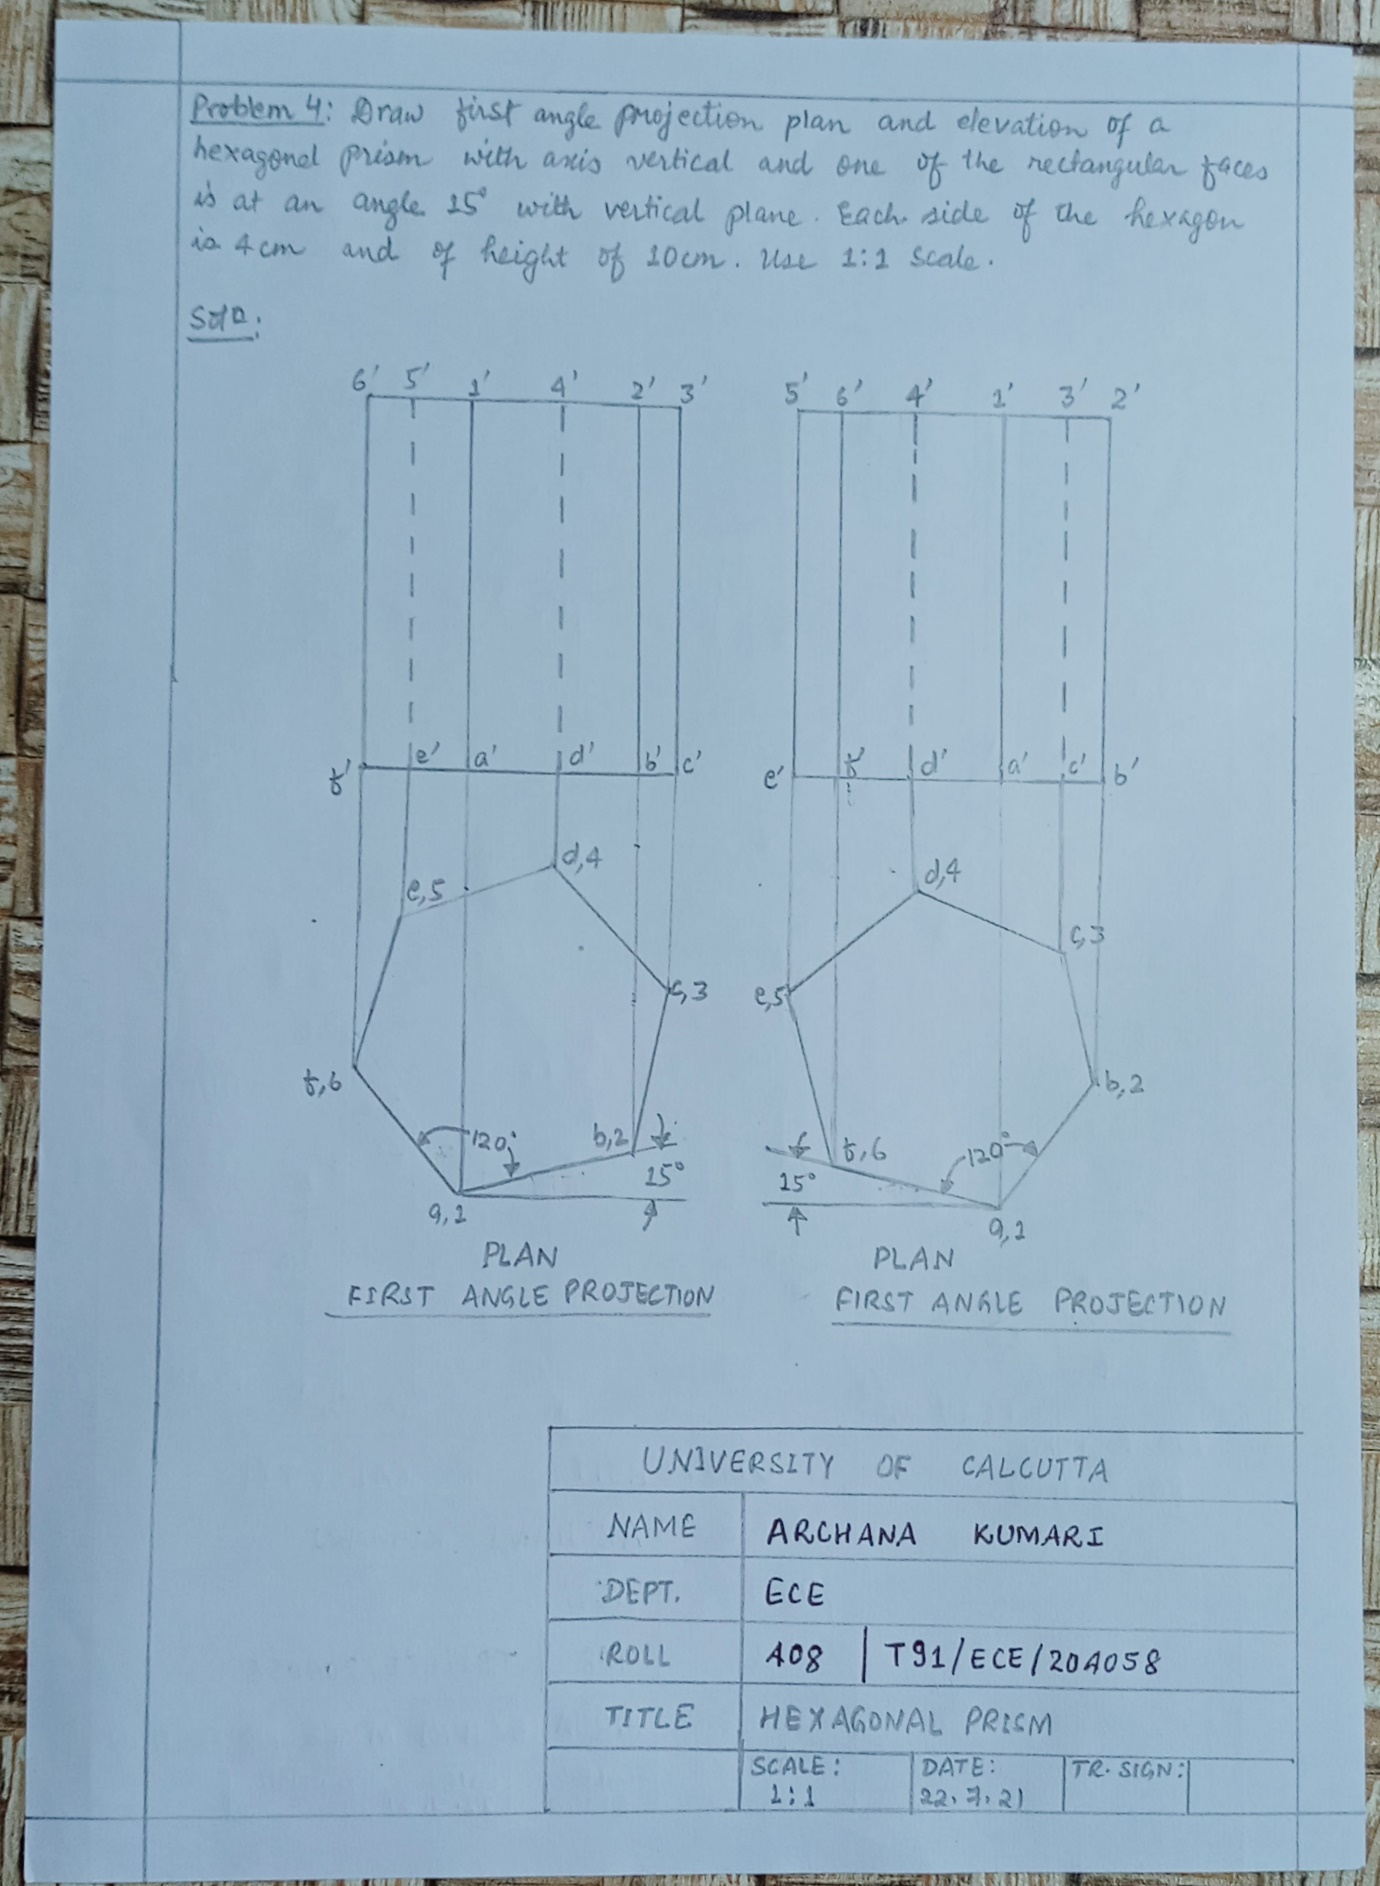 Problem 4: Draw first angle projection plan and elevation of a
hexagonal prism with axis vertical and one of the rectangular faces
is at an angle 15° with vertical plane. Each side of the hexagon
is 4 cm and of height of 10 cm. Use 1:1 scale.
Soln:
6' 5' 1' 4' 2' 3'
5' 6' 4' 1' 3' 2'
f' e' a' d' b' c'
e' f' d' a' c' b'
d,4
e,5
c,3
f,6
120°
b,2
15°
a,1
d,4
c,3
e,5
b,2
f,6
120°
15°
a,1
PLAN
FIRST ANGLE PROJECTION
PLAN
FIRST ANGLE PROJECTION
UNIVERSITY OF CALCUTTA
NAME ARCHANA KUMARI
DEPT. ECE
ROLL 408 | T91/ECE/204058
TITLE HEXAGONAL PRISM
SCALE: DATE: TR. SIGN:
1:1 22.7.21